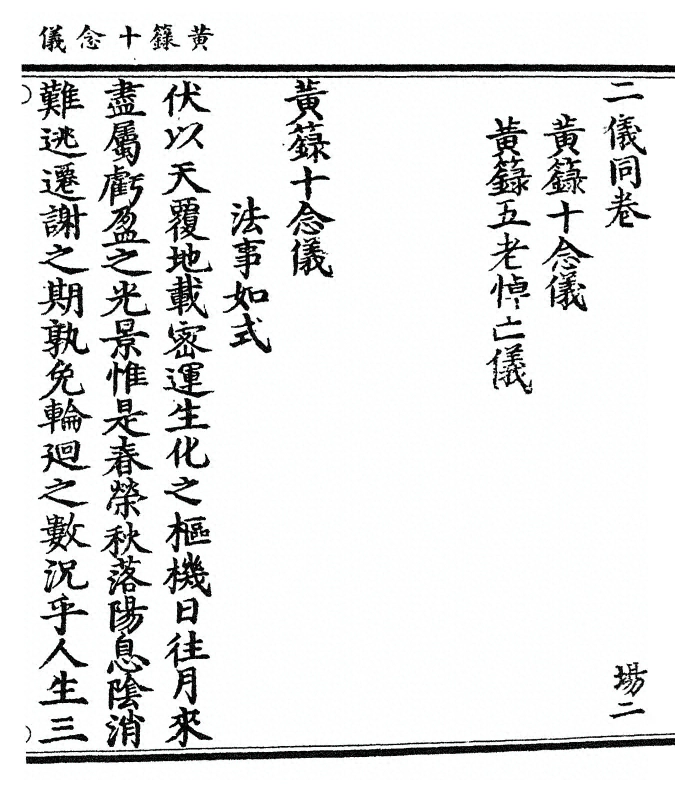 黄籙十念儀
二儀同卷 場二
黄籙十念儀
黄籙五老悼亡儀
黄籙十念儀
法事如式
伏以天覆地載密運生化之樞機日往月來
盡屬虧盈之光景惟是春榮秋落陽息陰消
難逃遷謝之期孰免輪迴之數況乎人生三